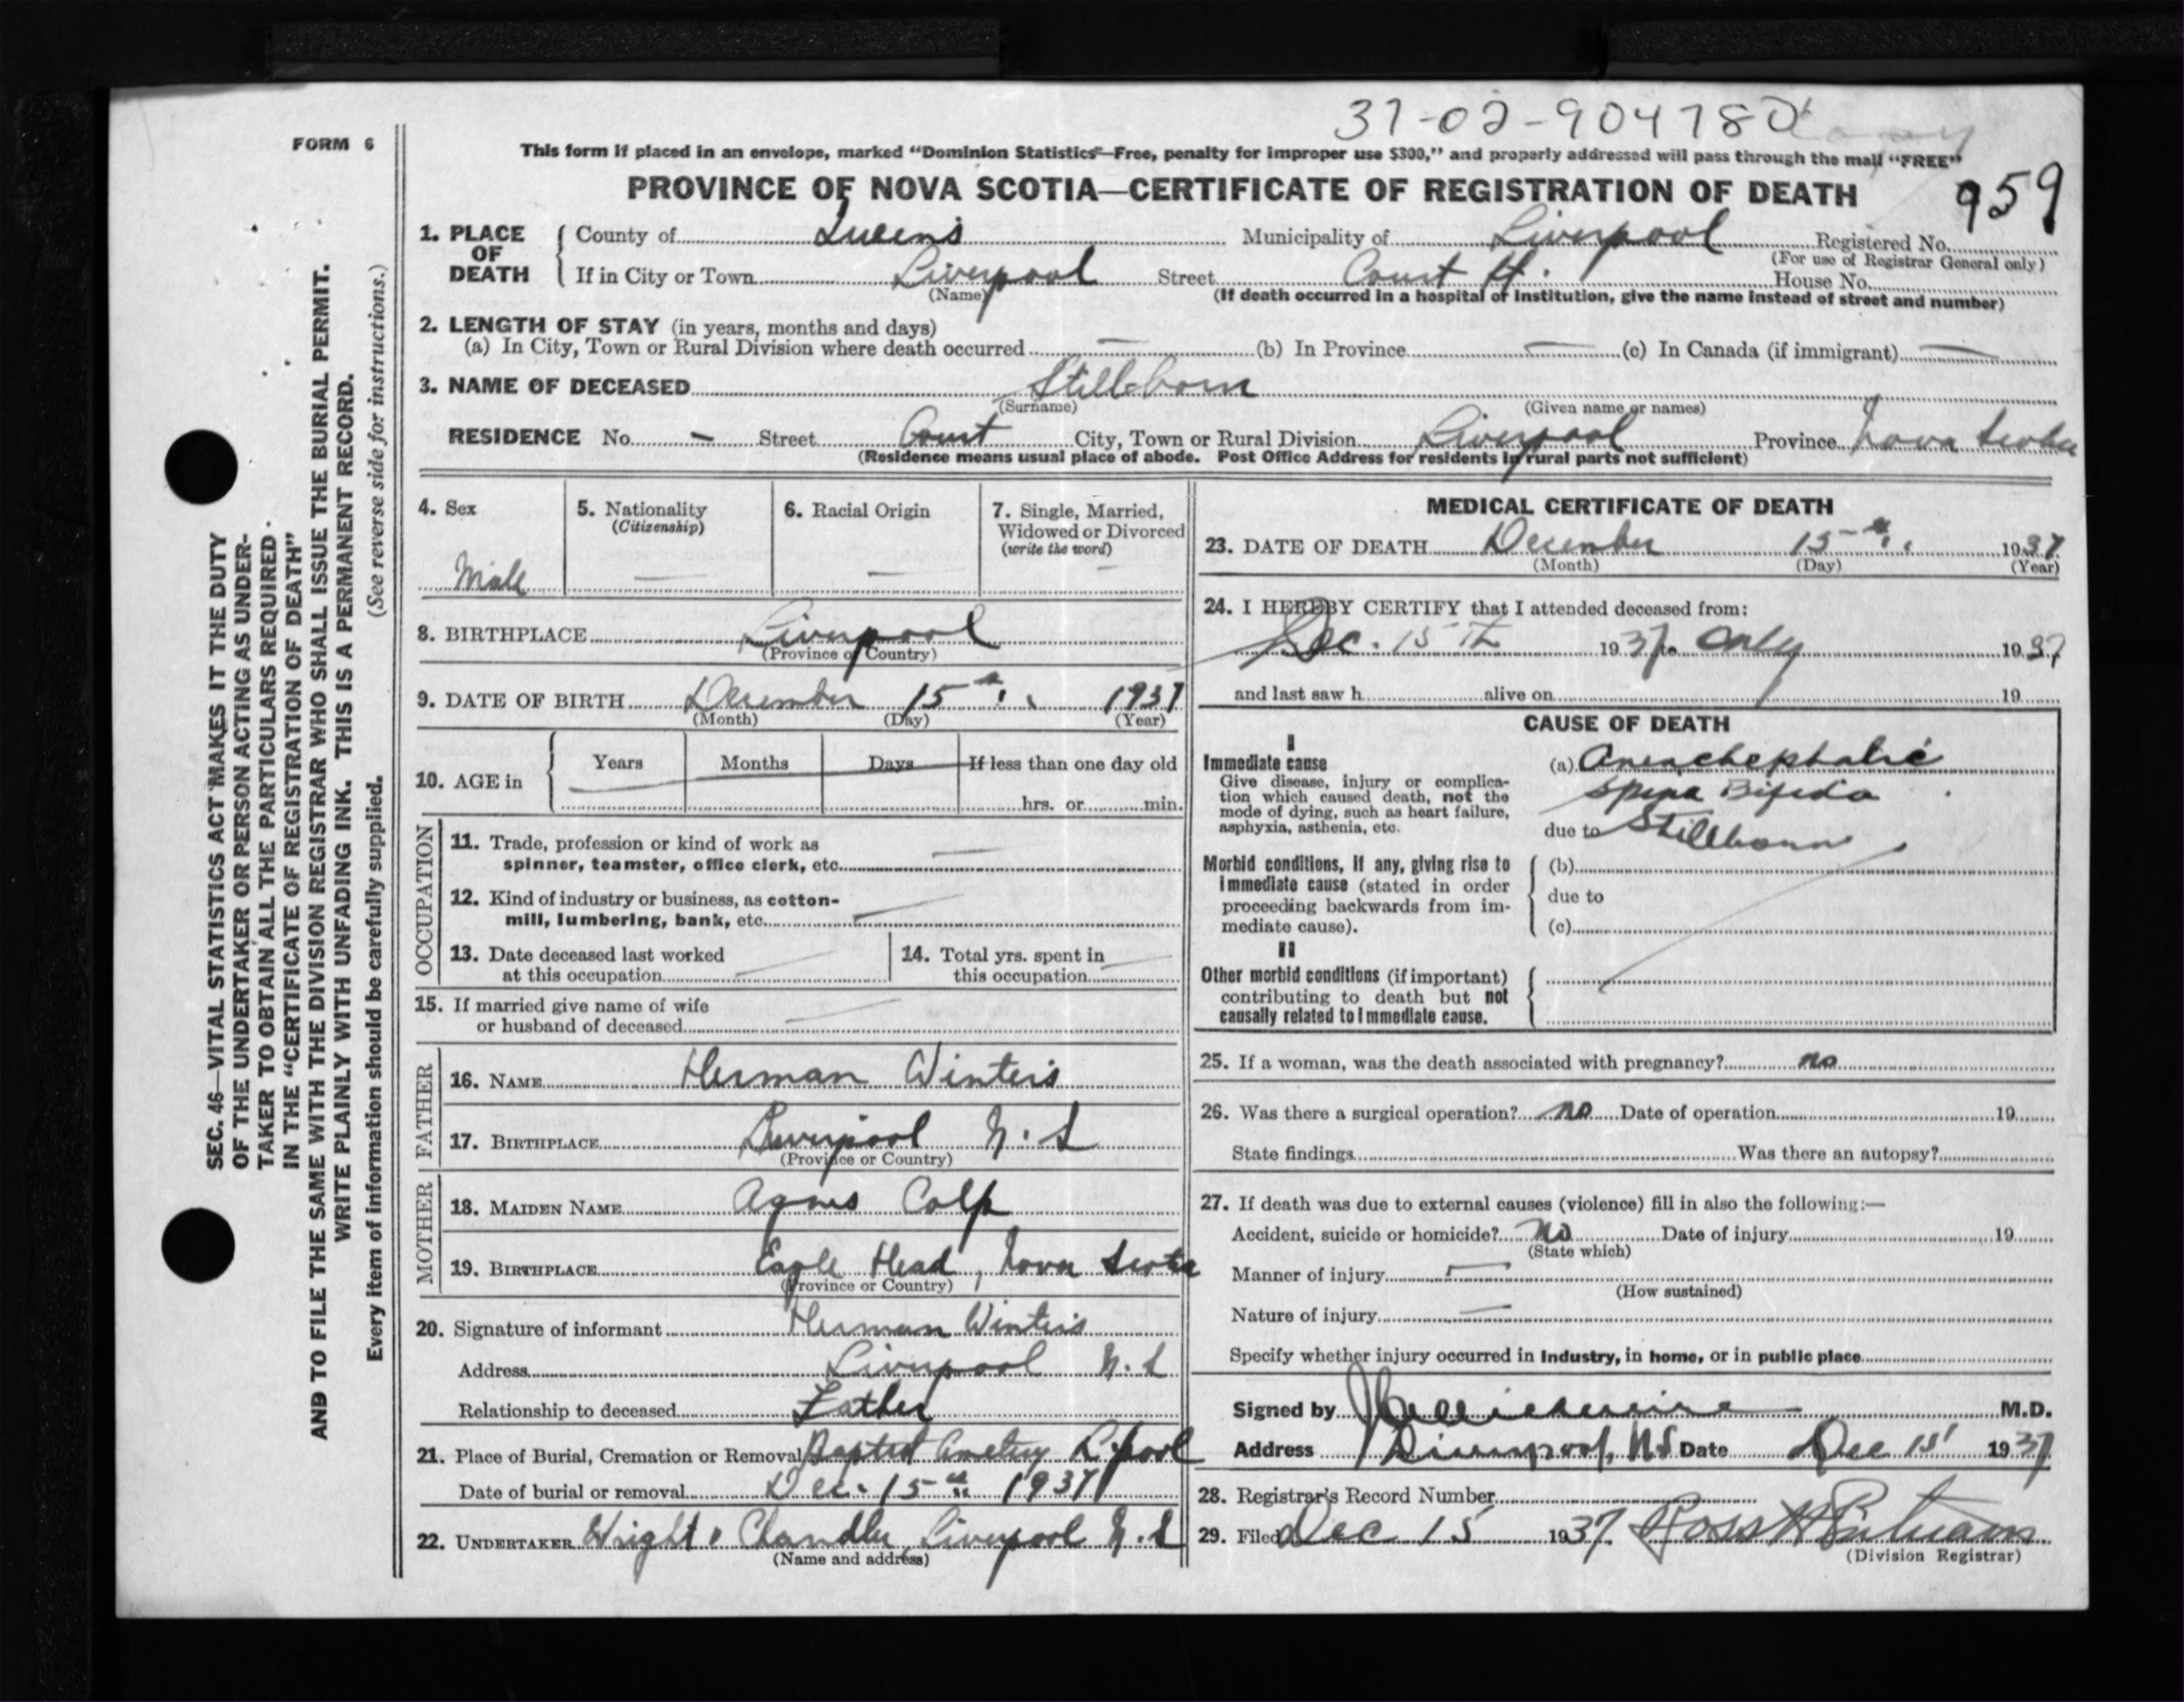 37-02-904780
FORM 6
This form if placed in an envelope, marked “Dominion Statistics—Free, penalty for improper use $300,” and properly addressed will pass through the mail “FREE”
PROVINCE OF NOVA SCOTIA—CERTIFICATE OF REGISTRATION OF DEATH
959
1. PLACE OF DEATH
County of Queens Municipality of Liverpool Registered No.
(For use of Registrar General only)
If in City or Town Liverpool Street Court St. House No.
(Name) (If death occurred in a hospital or institution, give the name instead of street and number)
2. LENGTH OF STAY (in years, months and days)
(a) In City, Town or Rural Division where death occurred — (b) In Province — (c) In Canada (if immigrant) —
3. NAME OF DECEASED Stillborn
(Surname) (Given name or names)
RESIDENCE No. — Street Court City, Town or Rural Division Liverpool Province Nova Scotia
(Residence means usual place of abode. Post Office Address for residents in rural parts not sufficient)
4. Sex Male
5. Nationality (Citizenship) —
6. Racial Origin —
7. Single, Married, Widowed or Divorced (write the word) —
8. BIRTHPLACE Liverpool
(Province or Country)
9. DATE OF BIRTH December 15th 1937
(Month) (Day) (Year)
10. AGE in Years Months Days If less than one day old
hrs. or min.
OCCUPATION
11. Trade, profession or kind of work as spinner, teamster, office clerk, etc. —
12. Kind of industry or business, as cotton-mill, lumbering, bank, etc. —
13. Date deceased last worked at this occupation —
14. Total yrs. spent in this occupation —
15. If married give name of wife or husband of deceased —
FATHER
16. NAME Herman Winters
17. BIRTHPLACE Liverpool N.S
(Province or Country)
MOTHER
18. MAIDEN NAME Agnes Colp
19. BIRTHPLACE Eagle Head, Nova Scotia
(Province or Country)
20. Signature of informant Herman Winters
Address Liverpool N.S
Relationship to deceased Father
21. Place of Burial, Cremation or Removal Baptist Cemetery L.pool
Date of burial or removal Dec. 15th 1937
22. UNDERTAKER Wright & Chandler, Liverpool N.S
(Name and address)
MEDICAL CERTIFICATE OF DEATH
23. DATE OF DEATH December 15th 1937
(Month) (Day) (Year)
24. I HEREBY CERTIFY that I attended deceased from:
Dec. 15th 1937 to only 1937
and last saw h alive on 19
CAUSE OF DEATH
I
Immediate cause
Give disease, injury or complication which caused death, not the mode of dying, such as heart failure, asphyxia, asthenia, etc.
(a) Anenchephalic
Spina Bifida
due to Stillborn
Morbid conditions, if any, giving rise to immediate cause (stated in order proceeding backwards from immediate cause).
(b)
due to
(c)
II
Other morbid conditions (if important) contributing to death but not causally related to immediate cause.
25. If a woman, was the death associated with pregnancy? no
26. Was there a surgical operation? no Date of operation 19
State findings Was there an autopsy?
27. If death was due to external causes (violence) fill in also the following:—
Accident, suicide or homicide? No Date of injury 19
(State which)
Manner of injury —
(How sustained)
Nature of injury —
Specify whether injury occurred in industry, in home, or in public place
Signed by M.D.
Address Liverpool, NS Date Dec 15 1937
28. Registrar's Record Number
29. Filed Dec 15 1937 Ross H
(Division Registrar)
SEC. 46—VITAL STATISTICS ACT MAKES IT THE DUTY
OF THE UNDERTAKER OR PERSON ACTING AS UNDER-
TAKER TO OBTAIN ALL THE PARTICULARS REQUIRED
IN THE “CERTIFICATE OF REGISTRATION OF DEATH”
AND TO FILE THE SAME WITH THE DIVISION REGISTRAR WHO SHALL ISSUE THE BURIAL PERMIT.
WRITE PLAINLY WITH UNFADING INK. THIS IS A PERMANENT RECORD.
Every item of information should be carefully supplied. (See reverse side for instructions.)